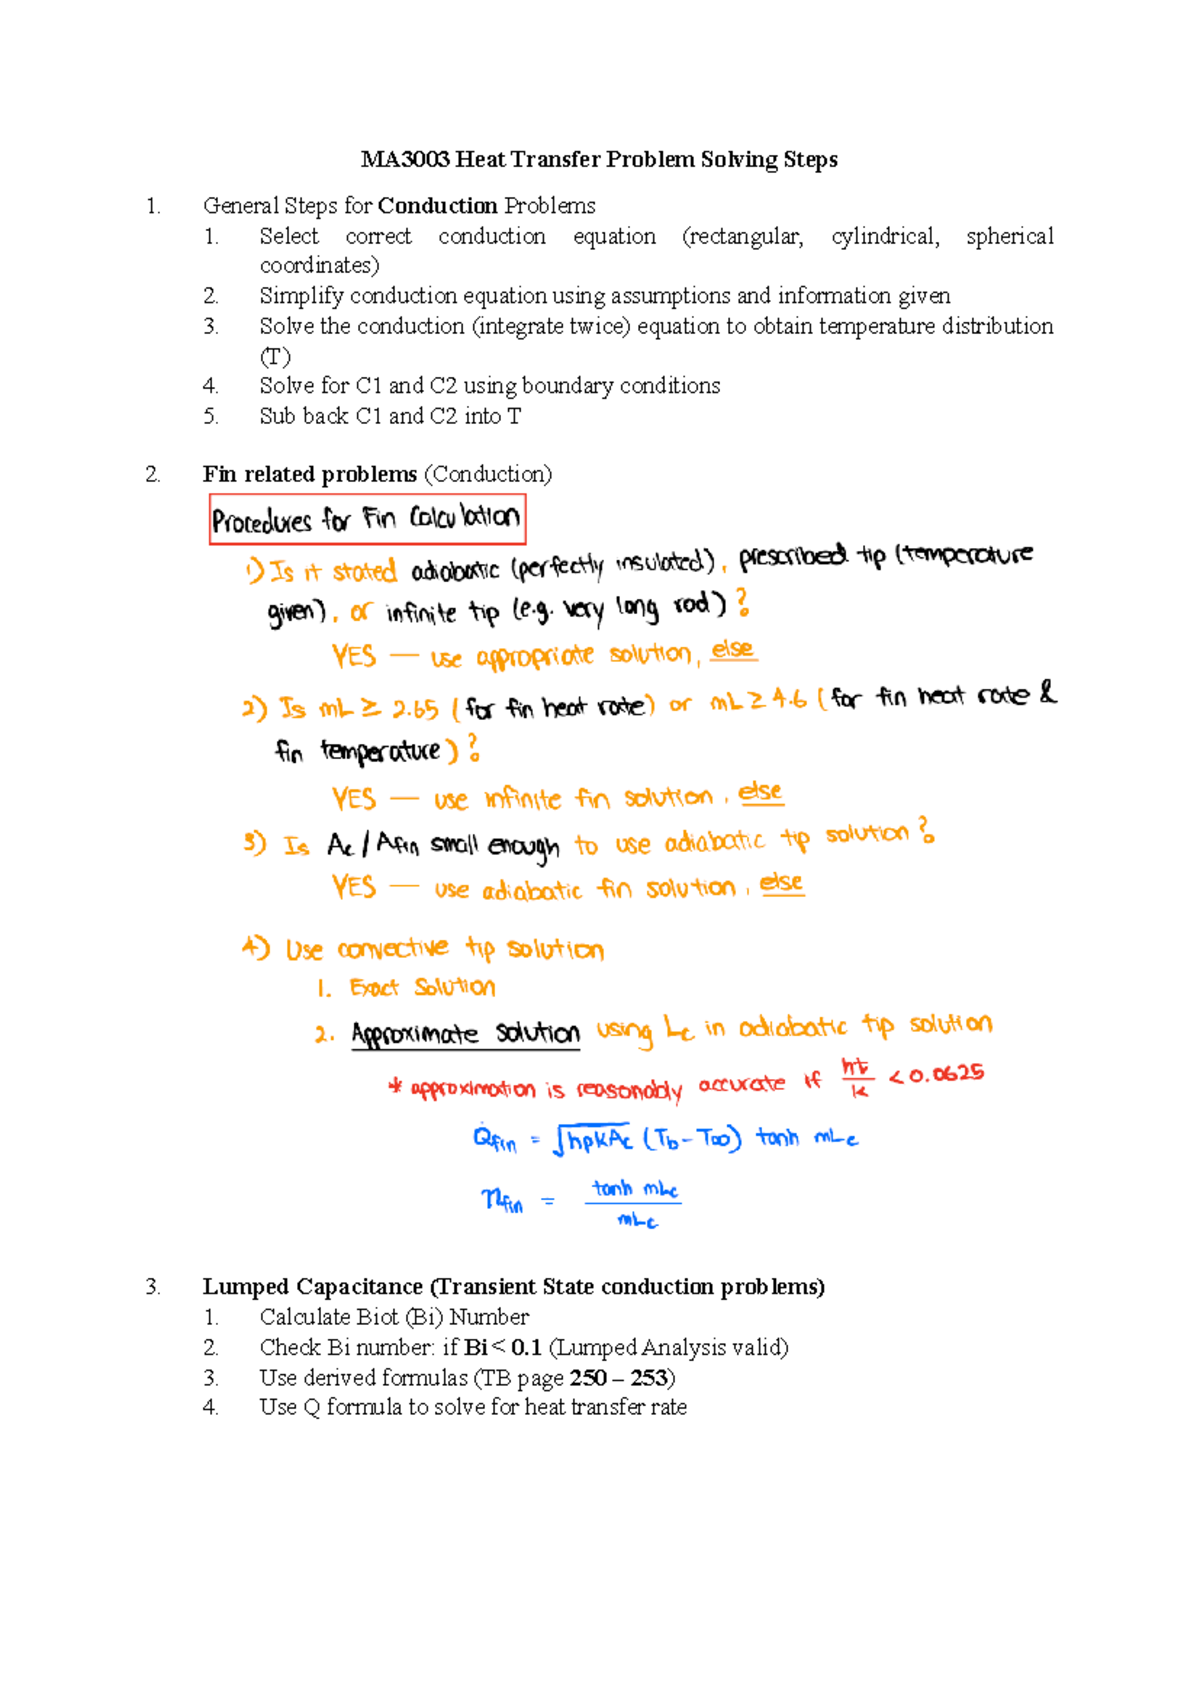 MA3003 Heat Transfer Problem Solving Steps
1. General Steps for Conduction Problems
1. Select correct conduction equation (rectangular, cylindrical, spherical
coordinates)
2. Simplify conduction equation using assumptions and information given
3. Solve the conduction (integrate twice) equation to obtain temperature distribution
(T)
4. Solve for C1 and C2 using boundary conditions
5. Sub back C1 and C2 into T
2. Fin related problems (Conduction)
Procedures for Fin Calculation
1) Is it stated adiabatic (perfectly insulated), prescribed tip (temperature
given), or infinite tip (e.g. very long rod)?
YES — use appropriate solution, else
2) Is mL ≥ 2.65 (for fin heat rate) or mL ≥ 4.6 (for fin heat rate &
fin temperature)?
YES — use infinite fin solution, else
3) Is Ac / Afin small enough to use adiabatic tip solution?
YES — use adiabatic fin solution, else
4) Use convective tip solution
1. Exact Solution
2. Approximate solution using Lc in adiabatic tip solution
* approximation is reasonably accurate if ht/k < 0.0625
Q̇fin = √hpkAc (Tb - T∞) tanh mLc
ηfin = tanh mLc / mLc
3. Lumped Capacitance (Transient State conduction problems)
1. Calculate Biot (Bi) Number
2. Check Bi number: if Bi < 0.1 (Lumped Analysis valid)
3. Use derived formulas (TB page 250 – 253)
4. Use Q formula to solve for heat transfer rate